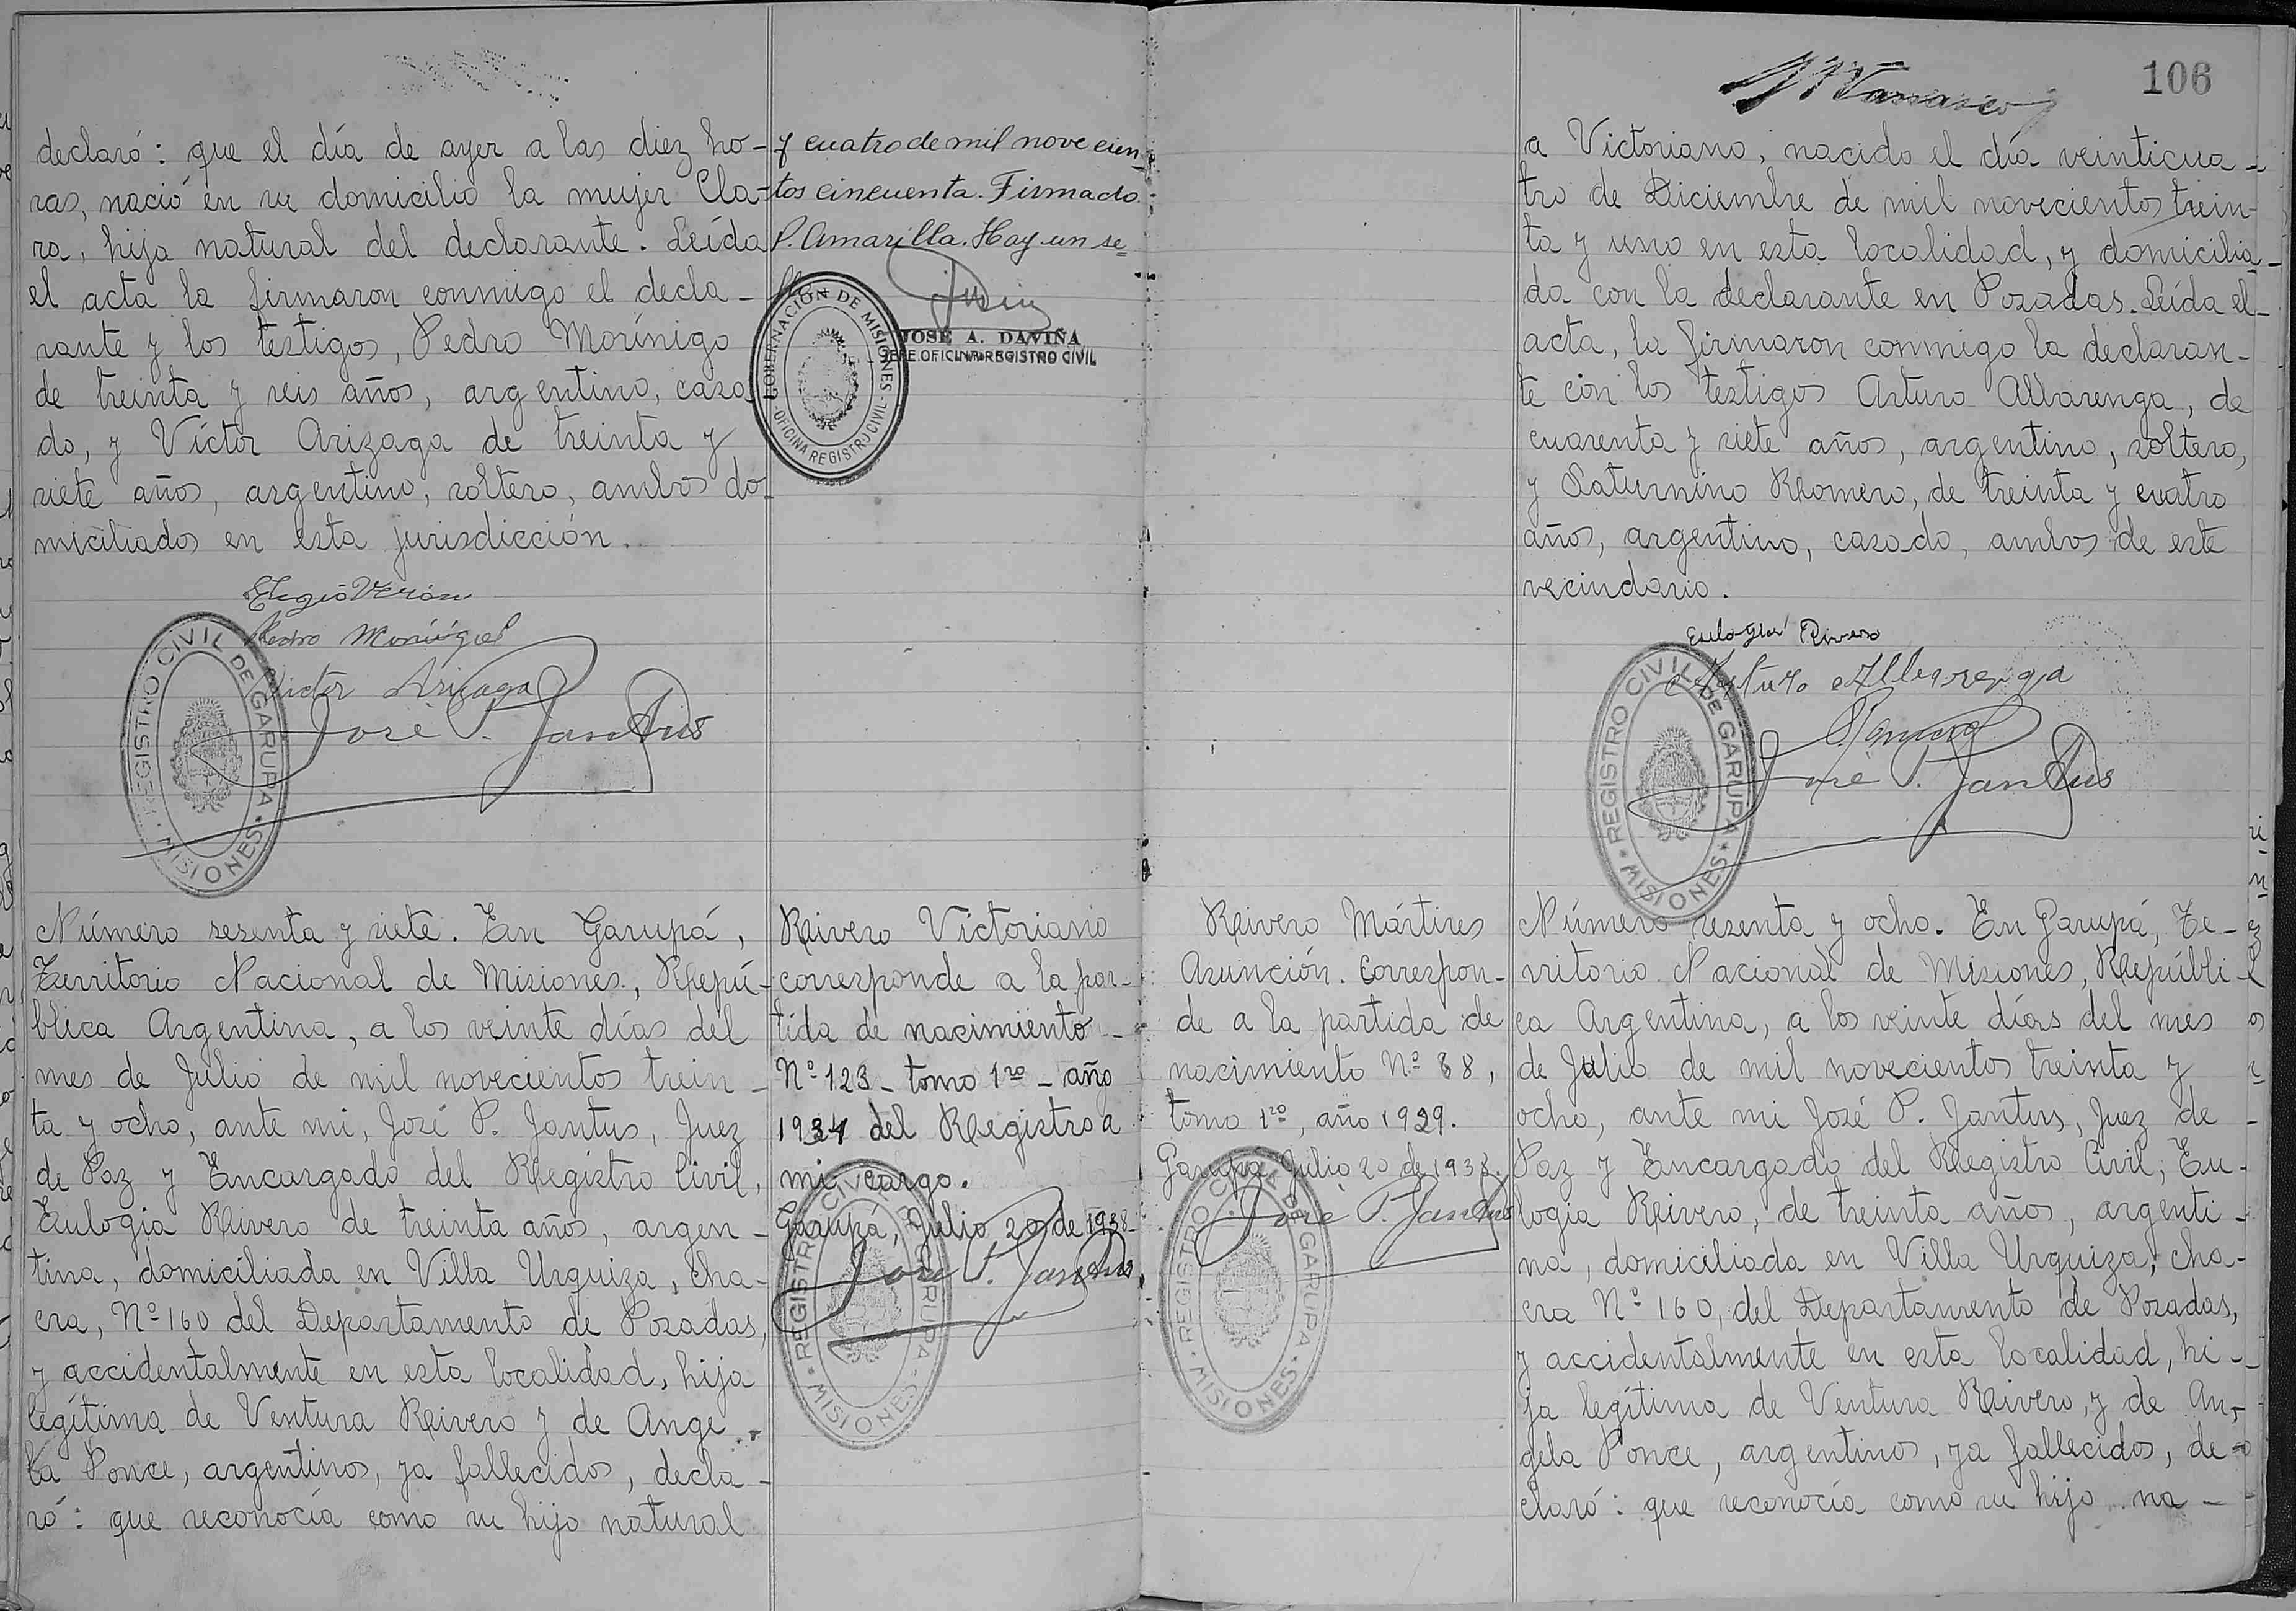 declaró: que el día de ayer a las diez ho-
ras, nació en su domicilio la mujer Cla-
ra, hija natural del declarante. Leída
el acta la firmaron conmigo el decla-
rante y los testigos, Pedro Morínigo
de treinta y seis años, argentino, casa
do, y Víctor Arizaga de treinta y
siete años, argentino, soltero, ambos do-
miciliados en esta jurisdicción.
Eligio Verón
Pedro Morinigo
Victor Arizaga
José P. Jantus
REGISTRO CIVIL DE GARUPA
MISIONES
y cuatro de mil novecien
tos cincuenta. Firmado
P. Amarilla. Hay un se-
llo
GOBERNACIÓN DE MISIONES
OFICINA REGISTRO CIVIL
JOSÉ A. DAVIÑA
JEFE OFICINA REGISTRO CIVIL
Número sesenta y siete. En Garupá,
Territorio Nacional de Misiones, Repú-
blica Argentina, a los veinte días del
mes de Julio de mil novecientos trein-
ta y ocho, ante mi, José P. Jantus, Juez
de Paz y Encargado del Registro Civil,
Eulogia Rivero de treinta años, argen-
tina, domiciliada en Villa Urquiza, cha-
cra, Nº 160 del Departamento de Posadas,
y accidentalmente en esta localidad, hija
legítima de Ventura Rivero y de Ange-
la Ponce, argentinos, ya fallecidos, decla-
ró: que reconocía como su hijo natural
Rivero Victoriano
corresponde a la par-
tida de nacimiento
Nº 123 - tomo 1ro - año
1934 del Registro a
mi cargo.
Garupá, Julio 20 de 1938-
José P. Jantus
REGISTRO CIVIL DE GARUPA
MISIONES
106
a Victoriano, nacido el día veinticua-
tro de Diciembre de mil novecientos trein-
ta y uno en esta localidad, y domicilia-
da con la declarante en Posadas. Leída el
acta, la firmaron conmigo la declaran-
te con los testigos Arturo Albarenga, de
cuarenta y siete años, argentino, soltero,
y Saturnino Romero, de treinta y cuatro
años, argentino, casado, ambos de este
vecindario.
Eulogia Rivero
Arturo Albarenga
S. Romero
José P. Jantus
REGISTRO CIVIL DE GARUPA
MISIONES
Rivero Mártires
Asunción. Correspon-
de a la partida de
nacimiento Nº 88,
tomo 1ro, año 1929.
Garupá Julio 20 de 1938.
José P. Jantus
REGISTRO CIVIL DE GARUPA
MISIONES
Número sesenta y ocho. En Garupá, Te-
rritorio Nacional de Misiones, Repúbli-
ca Argentina, a los veinte días del mes
de Julio de mil novecientos treinta y
ocho, ante mi José P. Jantus, Juez de
Paz y Encargado del Registro Civil, Eu-
logia Rivero, de treinta años, argenti-
na, domiciliada en Villa Urquiza, cha-
cra Nº 160, del Departamento de Posadas,
y accidentalmente en esta localidad, hi-
ja legítima de Ventura Rivero, y de An-
gela Ponce, argentinos, ya fallecidos, de-
claró: que reconocía como su hijo na-